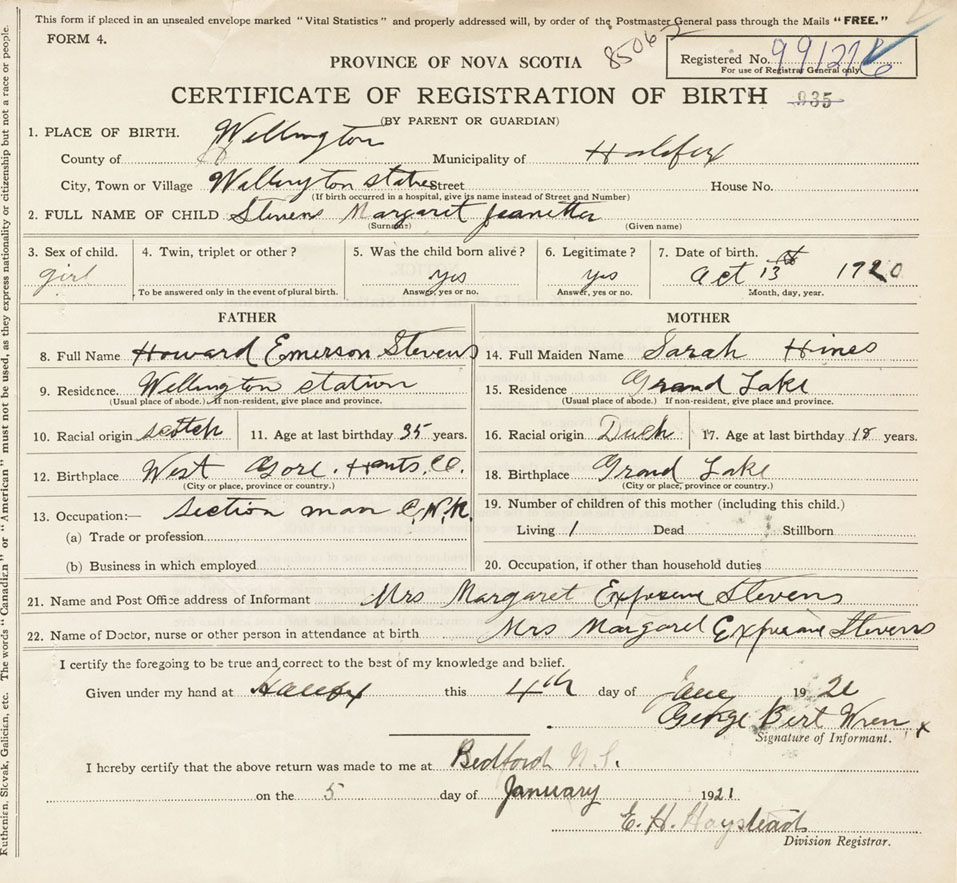 This form if placed in an unsealed envelope marked "Vital Statistics" and properly addressed will, by order of the Postmaster General pass through the Mails "FREE."
FORM 4.
8506-2
PROVINCE OF NOVA SCOTIA
Registered No. 991216
For use of Registrar General only
CERTIFICATE OF REGISTRATION OF BIRTH 935
(BY PARENT OR GUARDIAN)
1. PLACE OF BIRTH.
County of Wellington Municipality of Halifex
City, Town or Village Wellington Street House No.
(If birth occurred in a hospital, give its name instead of Street and Number)
2. FULL NAME OF CHILD Stevens Margaret Jeanetta
(Surname) (Given name)
3. Sex of child. 4. Twin, triplet or other? 5. Was the child born alive? 6. Legitimate? 7. Date of birth.
girl yes yes Oct 13 1920
To be answered only in the event of plural birth. Answer, yes or no. Answer, yes or no. Month, day, year.
FATHER MOTHER
8. Full Name Howard Emerson Stevens 14. Full Maiden Name Sarah Hines
9. Residence. Wellington station 15. Residence Grand Lake
(Usual place of abode.) If non-resident, give place and province. (Usual place of abode.) If non-resident, give place and province.
10. Racial origin scotch 11. Age at last birthday 35 years. 16. Racial origin Duch 17. Age at last birthday 18 years.
12. Birthplace West Gore. Hants. Co. 18. Birthplace Grand Lake
(City or place, province or country.) (City or place, province or country.)
13. Occupation:— Section man C.N.R. 19. Number of children of this mother (including this child.)
(a) Trade or profession Living 1 Dead Stillborn
(b) Business in which employed 20. Occupation, if other than household duties
21. Name and Post Office address of Informant Mrs Margaret Stevens
22. Name of Doctor, nurse or other person in attendance at birth Mrs Margaret Stevens
I certify the foregoing to be true and correct to the best of my knowledge and belief.
Given under my hand at this 4th day of 19 21
George Bert Wren x
Signature of Informant.
I hereby certify that the above return was made to me at Bedford N.S.
on the 5 day of January 1921
E. H. Haystead
Division Registrar.
Ruthenian, Slovak, Galician, etc. The words "Canadian" or "American" must not be used, as they express nationality or citizenship but not a race or people.